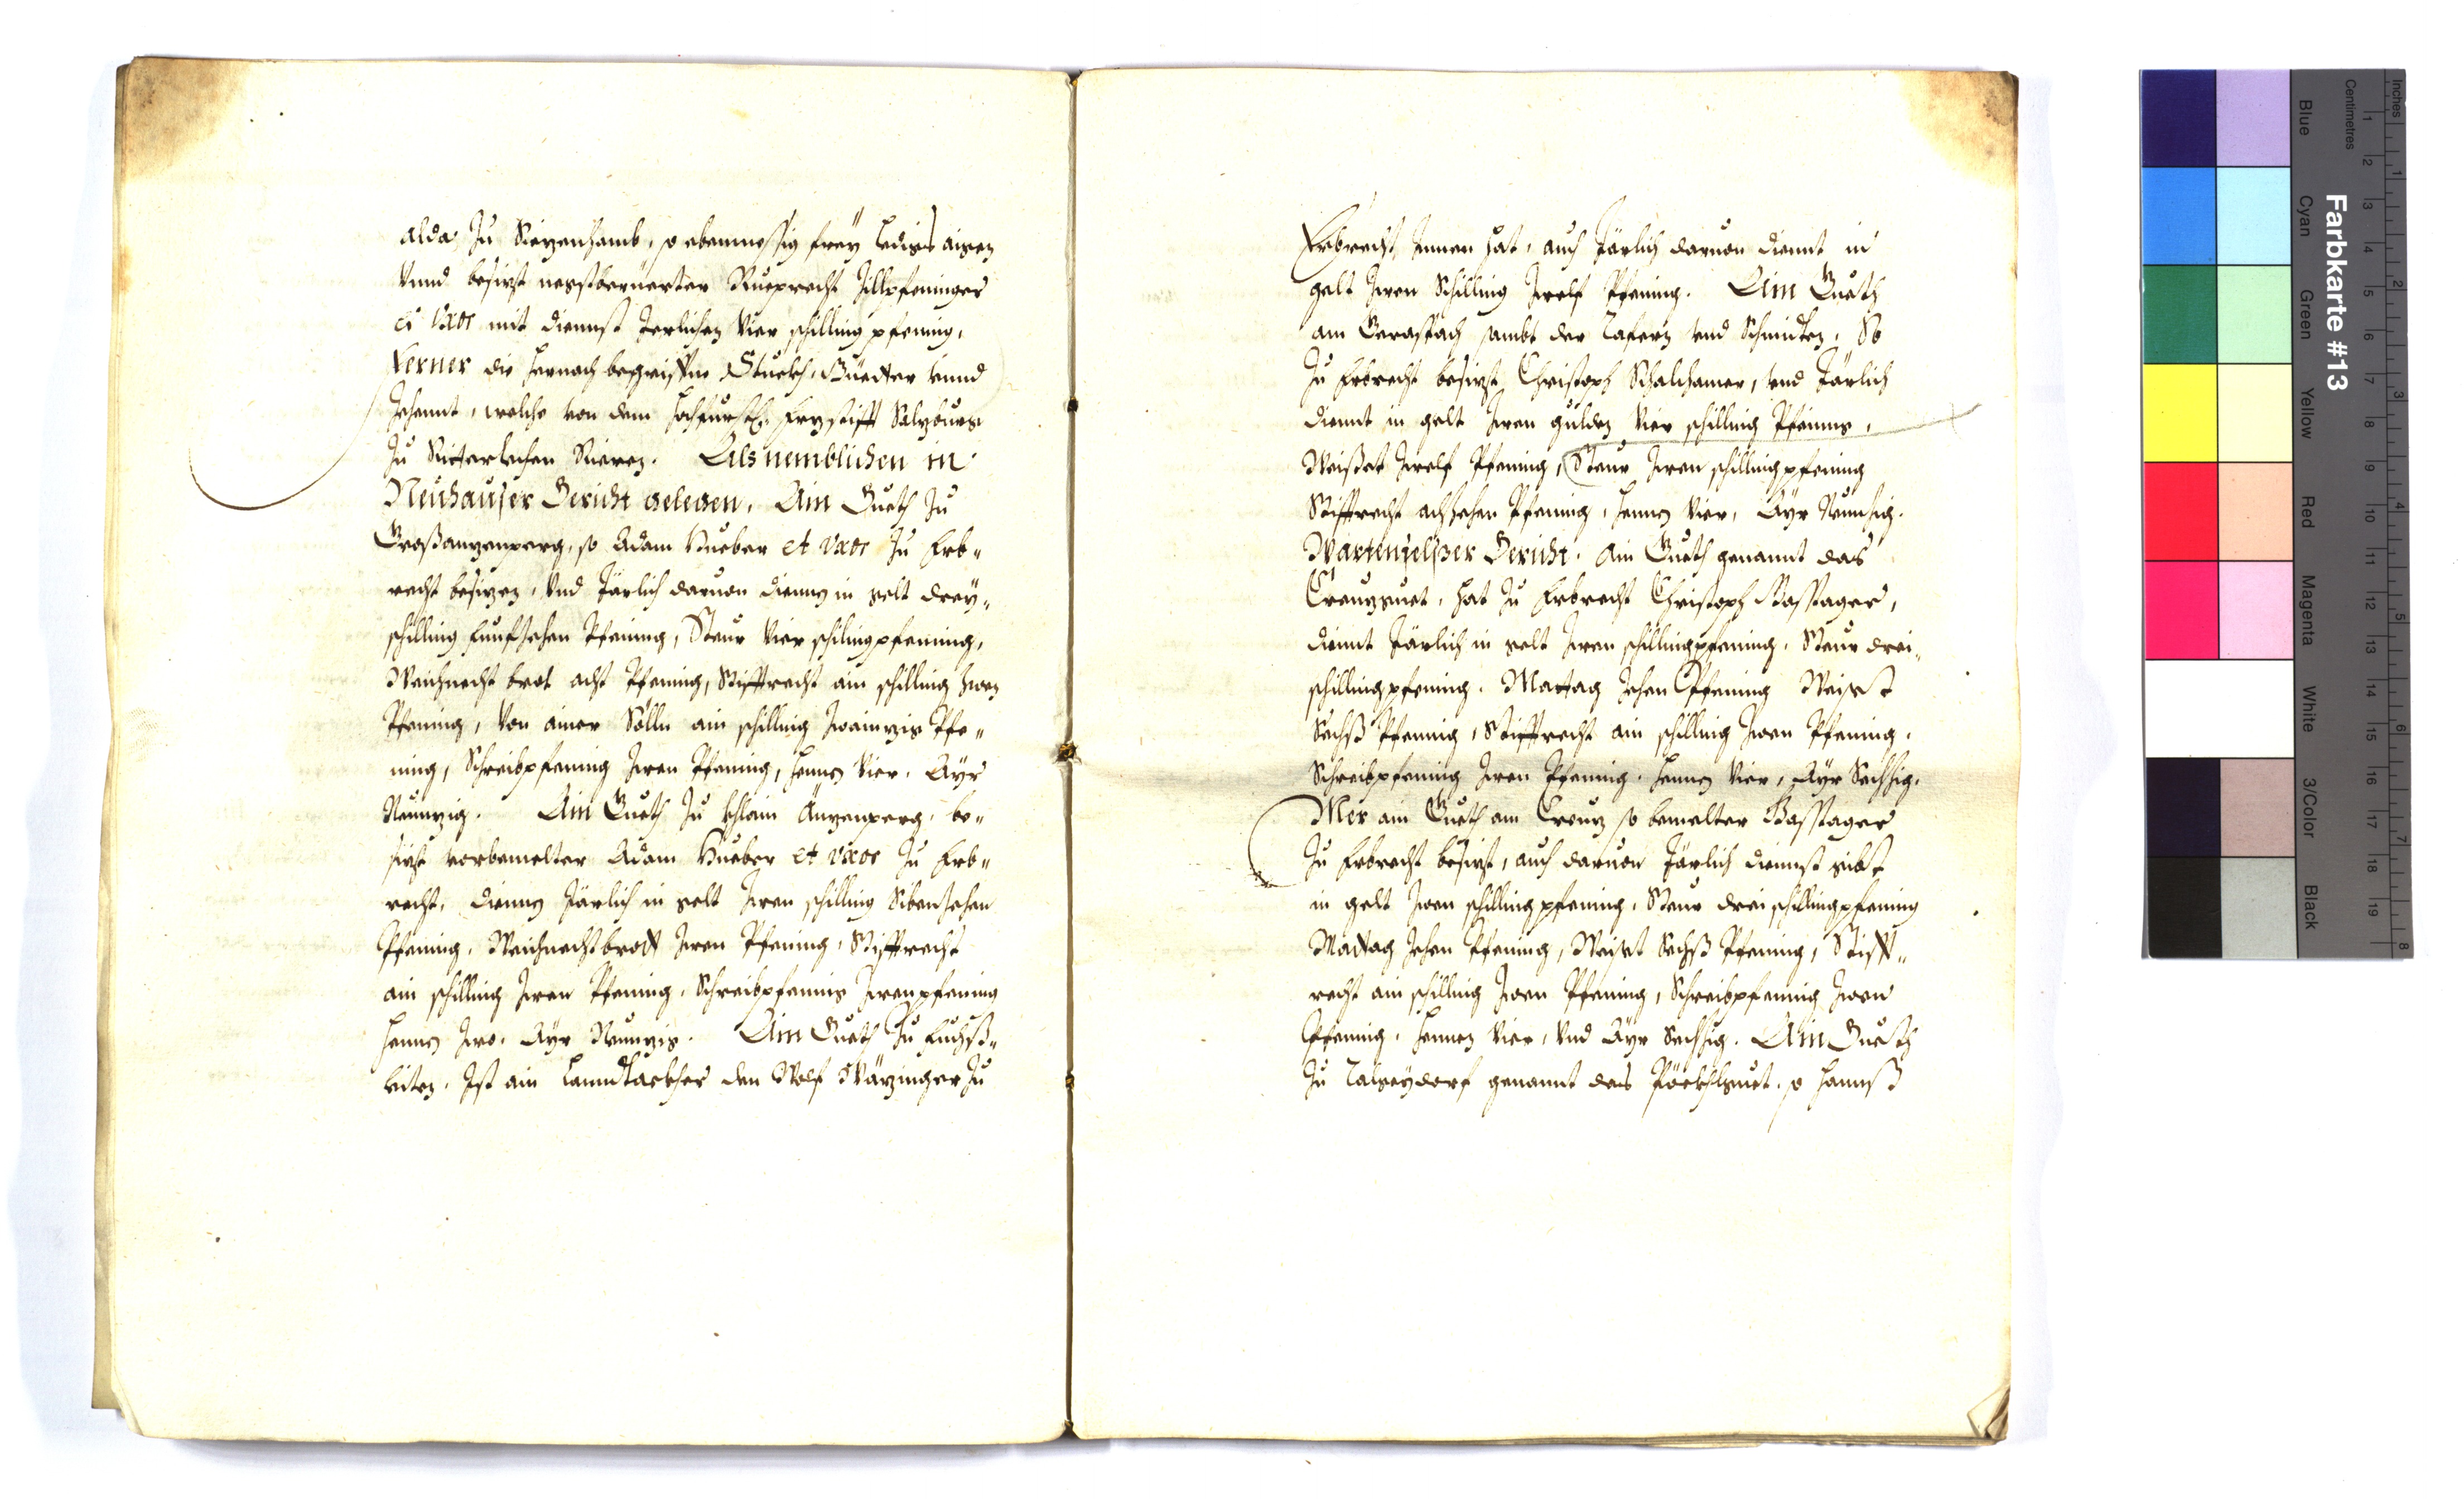 alda, Zu Siezenhamb, so ebenmessig frey ledigs aigen
Vnnd besizt negstberüerter Rueprecht Zillpfeninger
et Vxor mit diennst Jerlichen Vier schilling pfening,
Ferner die hernach begriffne Stuckh, Güetter vnnd
Zehennt, welche von dem Hochfürstl. Erzstifft Salzburg
Zu Ritterlehen Rieren. Als nemblichen in
Neuhauser Gericht gelegen, Ain Gueth Zu
Großanzenperg, so Adam Hueber et vxor Zu Erb-
recht besizen, Vnd Järlich daruon dienen in gelt drey-
schilling Funfzehen Pfening, Steur Vier schiling pfenning,
Weichnecht brot acht Pfening, Stifftrecht ain schilling zwen
Pfening, Von ainer Sölln ain schilling Zwainzig Pfe-
ning, Schreibpfening Zwen Pfening, Hennen Vier, Ayr
Neunzig. Ain Gueth Zu khlain Änzenperg, be-
sizt vorbemelter Adam Hueber et vxor Zu Erb-
recht, Dienen Järlich in gelt Zwen schilling Sibenzehen
Pfening, Weichnechtbrott Zwen Pfening, Stifftrecht
ain schilling Zwen Pfening, Schreibpfennig Zwen pfening
Hennen Zwo, Ayr Neunzig. Ain Gueth Zu Fuchß-
leiten, Ist ain Lanndtackher den Wolf Wärzinger Zu
Erbrecht Innen hat, auch Järlich daruon diennt in
gelt Zwen Schilling Zwelf Pfening. Ain Gueth
am Geraspach sambt der Tafern vnd Schmidten, So
Zu Erbrecht besizt Christoph Schalchamer, vnd Järlich
diennt in gelt Zwen gulden Vier schilling Pfening,
Weißat Zwelf Pfening, Steur Zwen schilling pfening
Stifftrecht achzehen Pfening, Hennen Vier, Ayr Neunzig.
Wartenfelßer Gericht. Ain Gueth genannt das
Creuzguet, hat Zu Erbrecht Christoph Passtager,
diennt Järlich in gelt Zwen schilling pfening, Steur drei-
schilling pfening. Mattag Zehen Pfening Weisat
Sechß Pfennig, Stifftrecht ain schilling Zwen Pfening,
Schreibpfening Zwen Pfening, Hennen Vier, Ayr Sechzig.
Mer ain Gueth am Creuz so bemelter Passtager
Zu Erbrecht besizt, auch daruon Järlich diennst gibt
in gelt Zwen schilling pfening, Steur drei schilling pfening
Mattag Zehen Pfening, Weisat Sechß Pfening, Stifft-
recht ain schilling Zwen Pfening, Schreibpfennig Zwen
Pfennig, Hennen Vier, Vnd Ayr Sechzig. Ain Gueth
Zu Talgeydorf genannt das Pöckhlguet, so Hannß
Farbkarte #13
Inches
Centimetres
1 2 3 4 5 6 7 8
1 2 3 4 5 6 7 8 9 10 11 12 13 14 15 16 17 18 19
Blue
Cyan
Green
Yellow
Red
Magenta
White
3/Color
Black